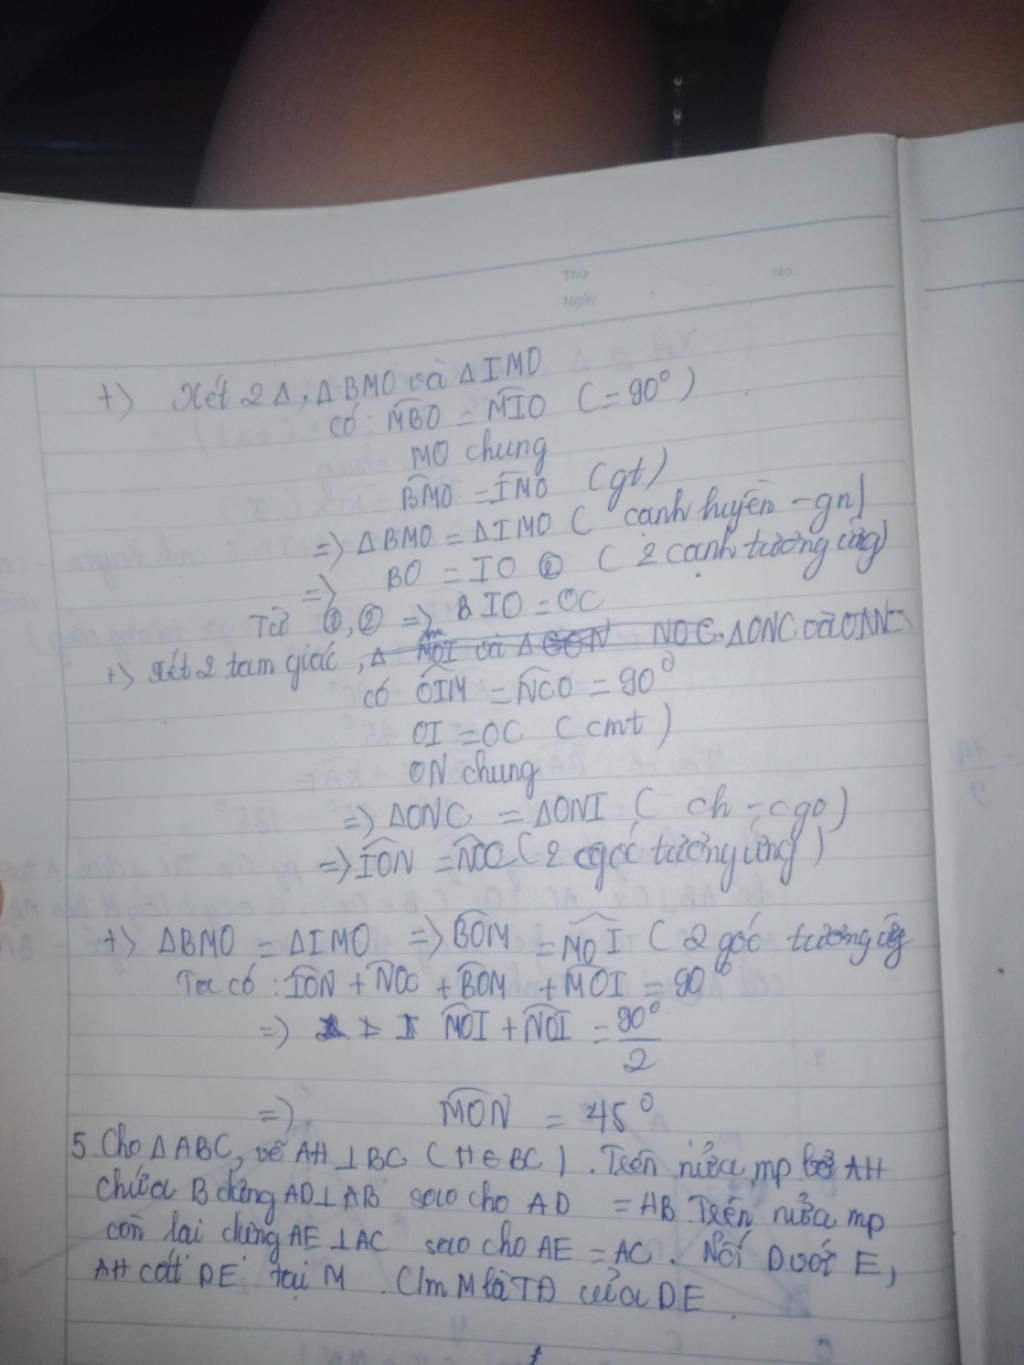 Thứ No.
Ngày
+) Xét 2 Δ, ΔBMO và ΔIMO
có: MBO = MIO (= 90°)
MO chung
BMO = IMO (gt)
=> ΔBMO = ΔIMO ( cạnh huyền - gn)
=> BO = IO ② ( 2 cạnh tương ứng)
Từ ①,② => BIO = OC
+> Xét 2 tam giác, Δ MOI và Δ CON NOC, ΔONC và
có OIM = NCO = 90°
OI = OC ( cmt )
ON chung
=> ΔONC = ΔONI ( ch - cgo )
=> ION = NOC ( 2 góc tương ứng )
+> ΔBMO = ΔIMO => BOM = MOI ( 2 góc tương ứng
Ta có : ION + NOC + BOM + MOI = 90°
=> MOI + NOI = 90°/2
=> MON = 45°
5. Cho ΔABC, vẽ AH ⊥ BC ( H ∈ BC ). Trên nửa mp bờ AH
chứa B dựng AD ⊥ AB sao cho AD = AB. Trên nửa mp
còn lại dựng AE ⊥ AC sao cho AE = AC. Nối D với E,
AH cắt DE tại M. C/m M là TĐ của DE